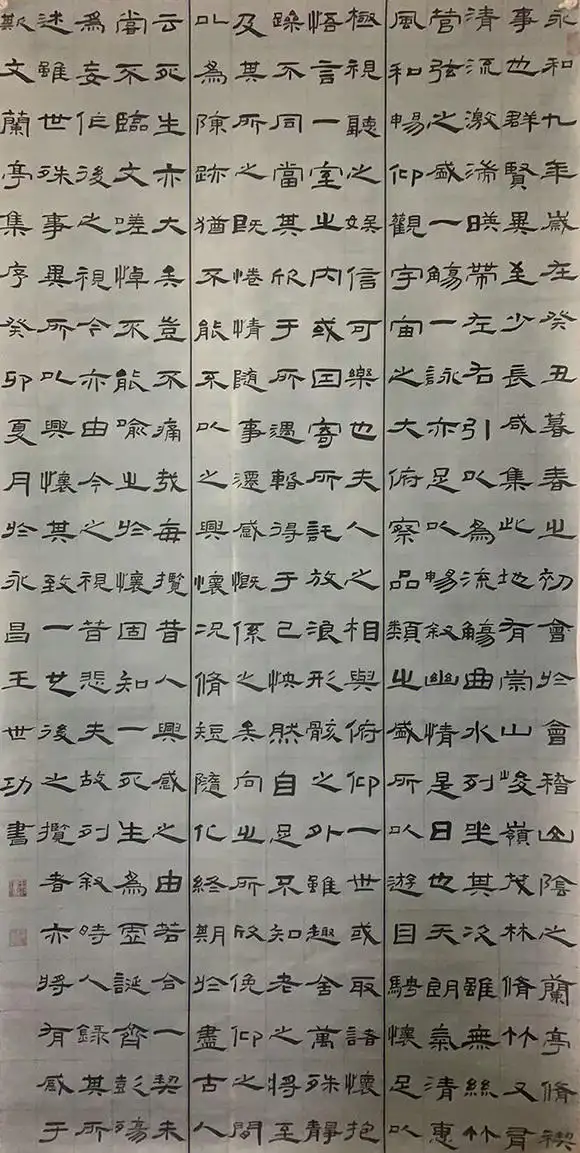 永和九年歲在癸丑暮春之初會於會稽山陰之蘭亭脩禊
事也群賢畢至少長咸集此地有崇山峻嶺茂林脩竹又有
清流激湍暎帶左右引以為流觴曲水列坐其次雖無絲竹
管弦之盛一觴一詠亦足以暢敘幽情是日也天朗氣清惠
風和暢仰觀宇宙之大俯察品類之盛所以遊目騁懷足以
極視聽之娛信可樂也夫人之相與俯仰一世或取諸懷抱
悟言一室之內或因寄所託放浪形骸之外雖趣舍萬殊靜
躁不同當其欣于所遇暫得于己怏然自足不知老之將至
及其所之既惓情隨事遷感慨係之矣向之所欣俛仰之間
以為陳跡猶不能不以之興懷況脩短隨化終期於盡古人
云死生亦大矣豈不痛哉每攬昔人興感之由若合一契未
嘗不臨文嗟悼不能喻之於懷固知一死生為虛誕齊彭殤
為妄作後之視今亦由今之視昔悲夫故列敘時人錄其所
述雖世殊事異所以興懷其致一也後之攬者亦將有感于
斯文蘭亭集序癸卯夏月於永昌王世功書